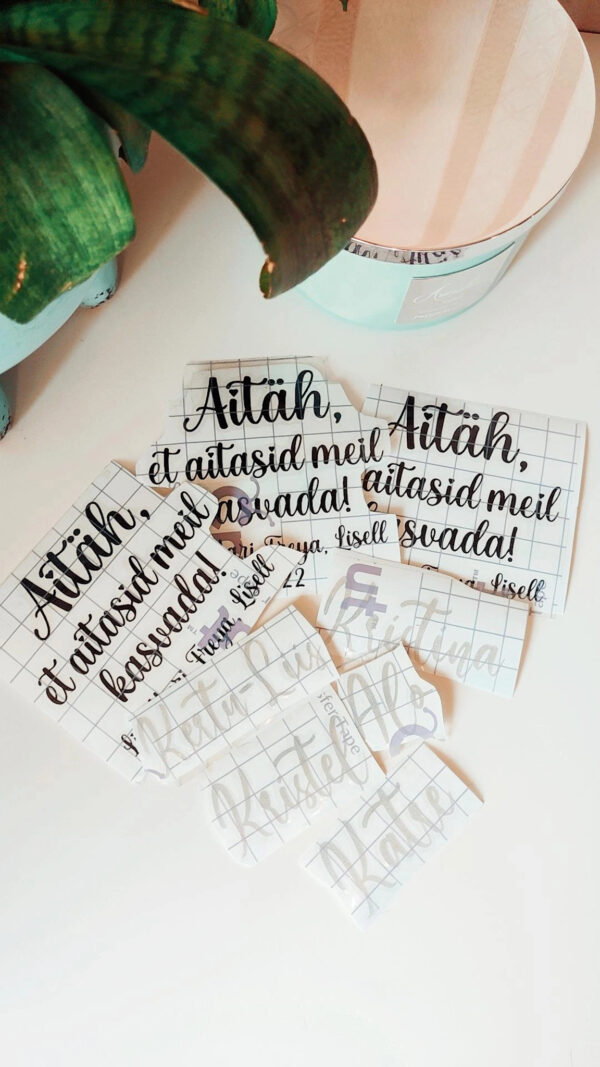 Aitäh,
et aitasid meil
asvada!
Freya, Lisell
22
Aitäh,
aitasid meil
svada!
Freya, Lisell
Aitäh,
et aitasid meil
kasvada!
Freya, Lisell
Kristina
Kertu-Liis
Alo
Kristel
Katre